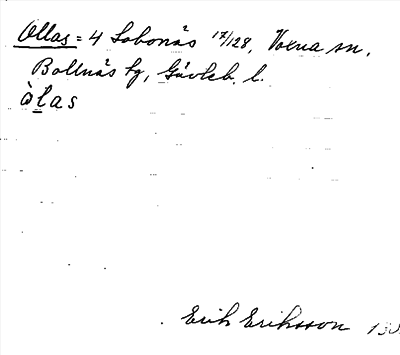 Ollas = 4 Lobonäs 17/128, Voxna sn,
Bollnäs tg, Gävleb. l.
òlas
Erik Eriksson 130